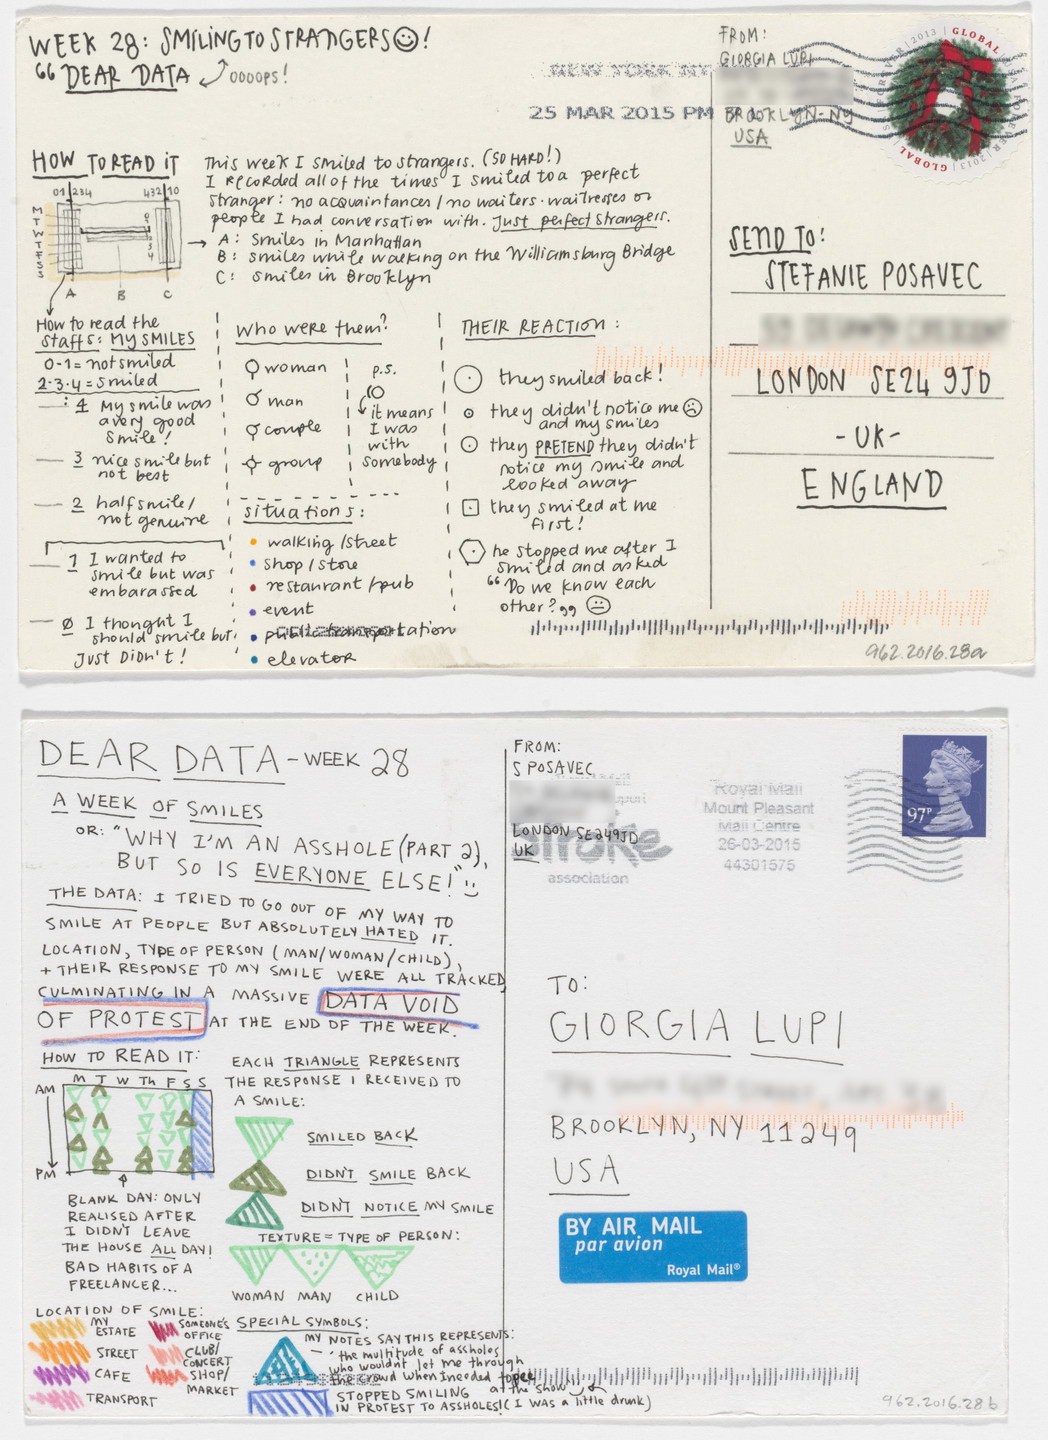 WEEK 28: SMILING TO STRANGERS!
“ DEAR DATA OOOOPS!
FROM:
GIORGIA LUPI
BROOKLYN-NY
USA
NEW YORK NY
25 MAR 2015 PM
FOREVER | 2013 | GLOBAL | USA
GLOBAL | 2013 | FOREVER
HOW TO READ IT
01 234 432 10
M
T
W
T
F
S
S
0
1
2
3
4
A B C
This week I smiled to strangers. (SO HARD!)
I recorded all of the times I smiled to a perfect
stranger: no acquaintances / no waiters-waitresses or
people I had conversation with. Just perfect strangers.
A: Smiles in Manhattan
B: smiles while walking on the Williamsburg Bridge
C: smiles in Brooklyn
How to read the
staffs: MY SMILES
0-1 = not smiled
2-3-4 = smiled
4 My smile was
a very good
smile!
3 nice smile but
not best
2 half smile /
not genuine
1 I wanted to
smile but was
embarassed
0 I thought I
should smile but
Just Didn't!
WHO were them?
woman
man
couple
group
p.s.
it means
I was
with
somebody
situations:
walking / street
shop / store
restaurant / pub
event
public transportation
elevator
THEIR REACTION:
they smiled back!
they didn't notice me
and my smiles
they PRETEND they didn't
notice my smile and
looked away
they smiled at me
first!
he stopped me after I
smiled and asked
“Do we know each
other?”
SEND TO:
STEFANIE POSAVEC
LONDON SE24 9JD
-UK-
ENGLAND
962.2016.28a
DEAR DATA - WEEK 28
A WEEK OF SMILES
OR: "WHY I'M AN ASSHOLE (PART 2),
BUT SO IS EVERYONE ELSE!"
THE DATA: I TRIED TO GO OUT OF MY WAY TO
SMILE AT PEOPLE BUT ABSOLUTELY HATED IT.
LOCATION, TYPE OF PERSON (MAN/WOMAN/CHILD),
+ THEIR RESPONSE TO MY SMILE WERE ALL TRACKED,
CULMINATING IN A MASSIVE DATA VOID
OF PROTEST AT THE END OF THE WEEK.
HOW TO READ IT:
M T W Th F S S
AM
PM
BLANK DAY: ONLY
REALISED AFTER
I DIDN'T LEAVE
THE HOUSE ALL DAY!
BAD HABITS OF A
FREELANCER...
EACH TRIANGLE REPRESENTS
THE RESPONSE I RECEIVED TO
A SMILE:
SMILED BACK
DIDN'T SMILE BACK
DIDN'T NOTICE MY SMILE
TEXTURE = TYPE OF PERSON:
WOMAN MAN CHILD
LOCATION OF SMILE:
MY ESTATE
STREET
CAFE
TRANSPORT
SOMEONE'S OFFICE
CLUB/CONCERT
SHOP/MARKET
SPECIAL SYMBOLS:
MY NOTES SAY THIS REPRESENTS:
- 'the multitude of assholes
who wouldn't let me through
the crowd when I needed to pee
at the show'
(I WAS a little drunk)
STOPPED SMILING
IN PROTEST TO ASSHOLES!
FROM:
S POSAVEC
LONDON SE249JD
UK
Stroke
association
Royal Mail
Mount Pleasant
Mail Centre
26-03-2015
44301575
97P
TO:
GIORGIA LUPI
BROOKLYN, NY 11249
USA
BY AIR MAIL
par avion
Royal Mail®
962.2016.28b